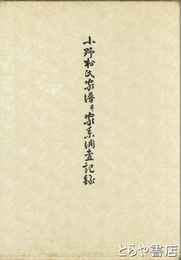 小野松氏家譜並家系調査記録
とらや書店